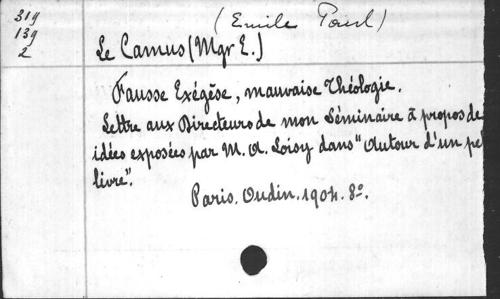 319
139
2
(Emile Paul)
Le Camus (Mgr E.)
Fausse Exégèse, mauvaise Théologie.
Lettre aux Directeurs de mon Séminaire à propos de
idées exposées par M. A. Loisy dans "Autour d'un pe
livre".
Paris. Oudin. 1904. 8º.